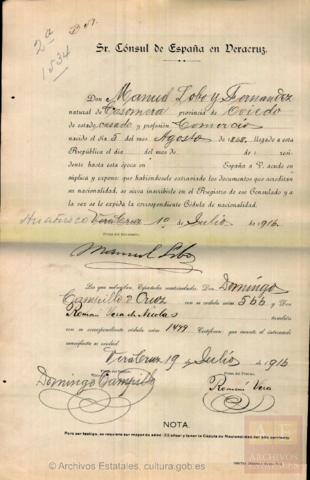 2ª
1534
Sr. Cónsul de España en Veracruz.
Don Manuel Lobo y Fernandez
natural de provincia de Oviedo
de estado casado y profesión Comercio
nacido el día 5 del mes Agosto de llegado á esta
República el día del mes de de
dente hasta esta época en España á V. acude en
súplica y expone: que habiéndosele extraviado los documentos que acreditan
su nacionalidad, se sirva inscribirle en el Registro de ese Consulado y a
la vez se le expida la correspondiente Cédula de nacionalidad.
Huatusco Veracruz 10 de Julio de 1916
Manuel Lobo
Los que subscriben, Españoles matriculados: Don Domingo
Campillo Cruz con su cédula núm. 566 y Don
Román Vera también
con su correspondiente cédula núm. 1499 Certifican: que cuanto el interesado
manifiesta es verdad.
Veracruz 19 de Julio de 1916
Domingo Campillo
Román Vera
NOTA.
Para ser testigo, se requiere ser mayor de edad y tener la Cédula de Nacionalidad del año corriente
ARCHIVOS
© Archivos Estatales, cultura.gob.es